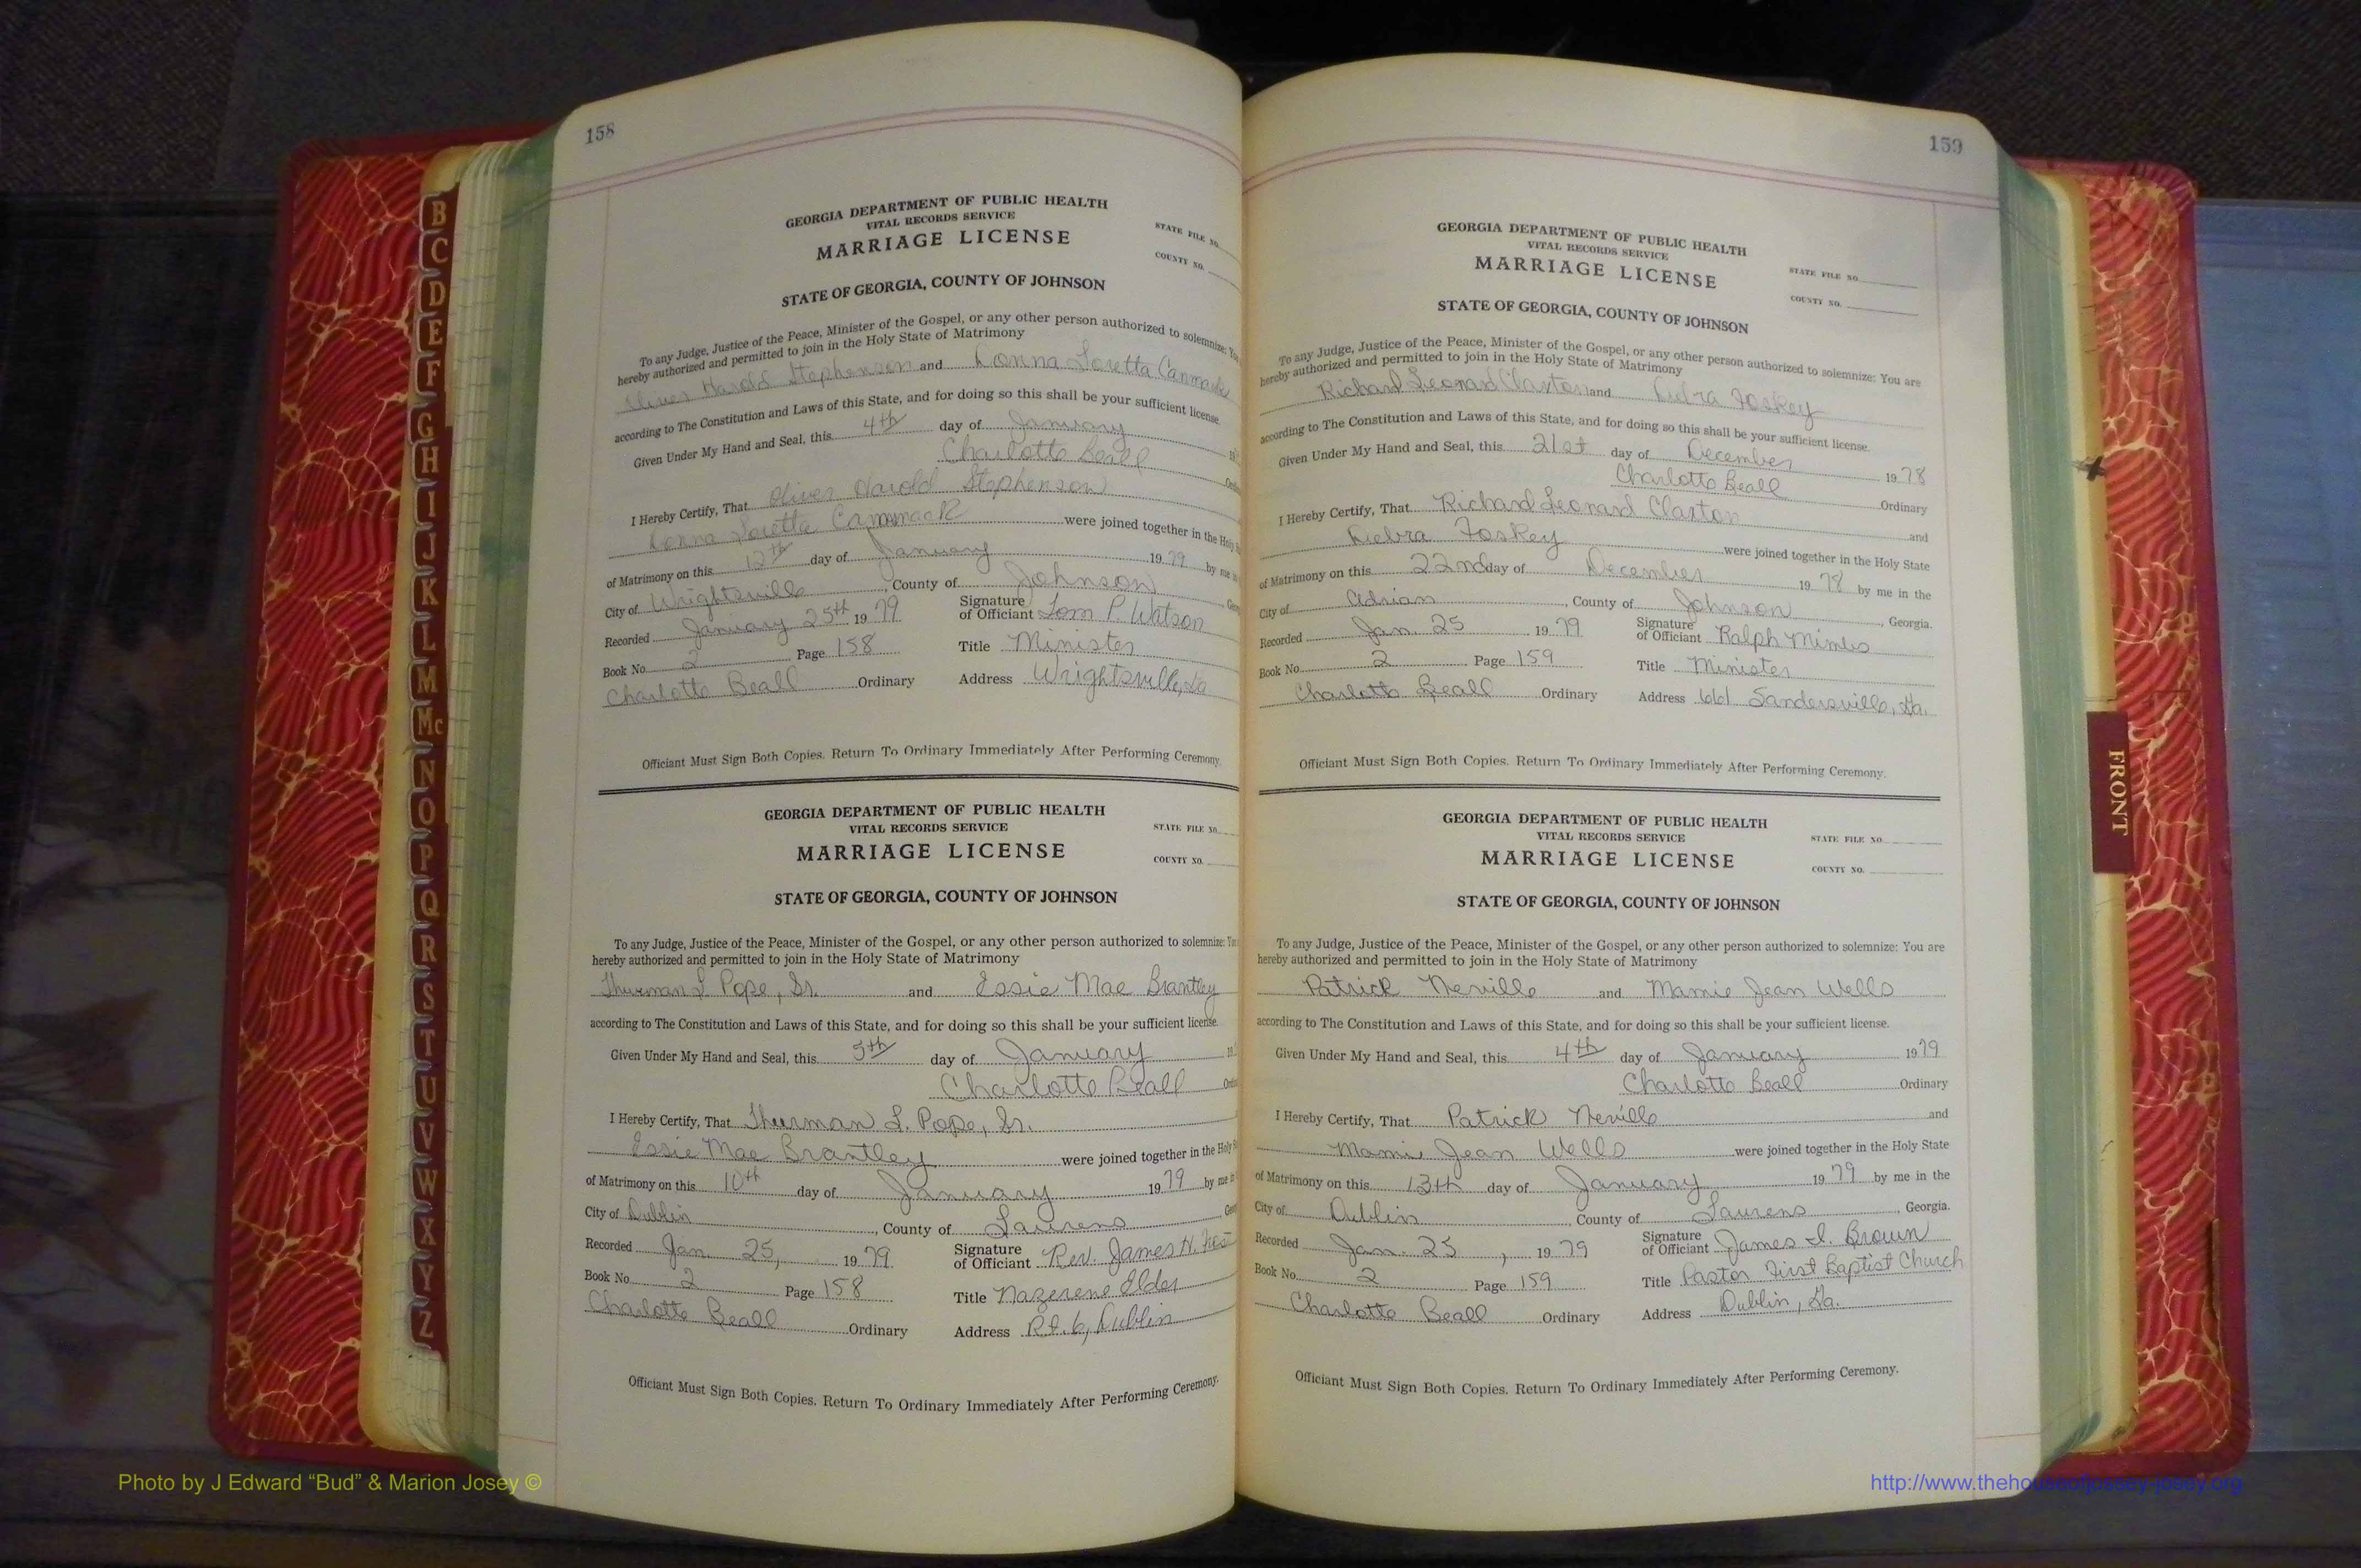 158
GEORGIA DEPARTMENT OF PUBLIC HEALTH
VITAL RECORDS SERVICE
MARRIAGE LICENSE
STATE FILE NO.
COUNTY NO.
STATE OF GEORGIA, COUNTY OF JOHNSON
To any Judge, Justice of the Peace, Minister of the Gospel, or any other person authorized to solemnize: You
hereby authorized and permitted to join in the Holy State of Matrimony
Oliver Harold Stephenson and Donna Loretta Cammack
according to The Constitution and Laws of this State, and for doing so this shall be your sufficient license.
Given Under My Hand and Seal, this 4th day of January 19
Charlotte Beall
I Hereby Certify, That Oliver Harold Stephenson
Donna Loretta Cammack were joined together in the Holy
of Matrimony on this 12th day of January 19 79 by me
City of Wrightsville, County of Johnson
Recorded January 25th 19 79 Signature of Officiant Tom P. Watson
Book No. 2 Page 158 Title Minister
Charlotte Beall Ordinary Address Wrightsville, Ga
Officiant Must Sign Both Copies. Return To Ordinary Immediately After Performing Ceremony.
GEORGIA DEPARTMENT OF PUBLIC HEALTH
VITAL RECORDS SERVICE
MARRIAGE LICENSE
STATE FILE NO.
COUNTY NO.
STATE OF GEORGIA, COUNTY OF JOHNSON
To any Judge, Justice of the Peace, Minister of the Gospel, or any other person authorized to solemnize: You
hereby authorized and permitted to join in the Holy State of Matrimony
Thurman L Pope, Sr. and Essie Mae Brantley
according to The Constitution and Laws of this State, and for doing so this shall be your sufficient license.
Given Under My Hand and Seal, this 5th day of January 19
Charlotte Beall
I Hereby Certify, That Thurman L. Pope, Sr.
Essie Mae Brantley were joined together in the Holy
of Matrimony on this 10th day of January 19 79 by me
City of Dublin, County of Laurens
Recorded Jan. 25, 19 79 Signature of Officiant Rev. James H.
Book No. 2 Page 158 Title Nazerene Elder
Charlotte Beall Ordinary Address Rt. 6, Dublin
Officiant Must Sign Both Copies. Return To Ordinary Immediately After Performing Ceremony.
159
GEORGIA DEPARTMENT OF PUBLIC HEALTH
VITAL RECORDS SERVICE
MARRIAGE LICENSE
STATE FILE NO.
COUNTY NO.
STATE OF GEORGIA, COUNTY OF JOHNSON
To any Judge, Justice of the Peace, Minister of the Gospel, or any other person authorized to solemnize: You are
hereby authorized and permitted to join in the Holy State of Matrimony
Richard Leonard Claxton and Debra Foskey
according to The Constitution and Laws of this State, and for doing so this shall be your sufficient license.
Given Under My Hand and Seal, this 21st day of December 19 78
Charlotte Beall Ordinary
I Hereby Certify, That Richard Leonard Claxton and
Debra Foskey were joined together in the Holy State
of Matrimony on this 22nd day of December 19 78 by me in the
City of Adrian, County of Johnson, Georgia.
Recorded Jan. 25 19 79 Signature of Officiant Ralph Mimbs
Book No. 2 Page 159 Title Minister
Charlotte Beall Ordinary Address 661 Sandersville, Ga.
Officiant Must Sign Both Copies. Return To Ordinary Immediately After Performing Ceremony.
GEORGIA DEPARTMENT OF PUBLIC HEALTH
VITAL RECORDS SERVICE
MARRIAGE LICENSE
STATE FILE NO.
COUNTY NO.
STATE OF GEORGIA, COUNTY OF JOHNSON
To any Judge, Justice of the Peace, Minister of the Gospel, or any other person authorized to solemnize: You are
hereby authorized and permitted to join in the Holy State of Matrimony
Patrick Neville and Mamie Jean Wells
according to The Constitution and Laws of this State, and for doing so this shall be your sufficient license.
Given Under My Hand and Seal, this 4th day of January 19 79
Charlotte Beall Ordinary
I Hereby Certify, That Patrick Neville and
Mamie Jean Wells were joined together in the Holy State
of Matrimony on this 13th day of January 19 79 by me in the
City of Dublin, County of Laurens, Georgia.
Recorded Jan. 25, 19 79 Signature of Officiant James I. Brown
Book No. 2 Page 159 Title Pastor First Baptist Church
Charlotte Beall Ordinary Address Dublin, Ga.
Officiant Must Sign Both Copies. Return To Ordinary Immediately After Performing Ceremony.
B
C
D
E
F
G
H
I
J
K
L
M
Mc
N
O
P
Q
R
S
T
U
V
W
X
Y
Z
FRONT
Photo by J Edward “Bud” & Marion Josey ©
http://www.thehouseofjossey-josey.org